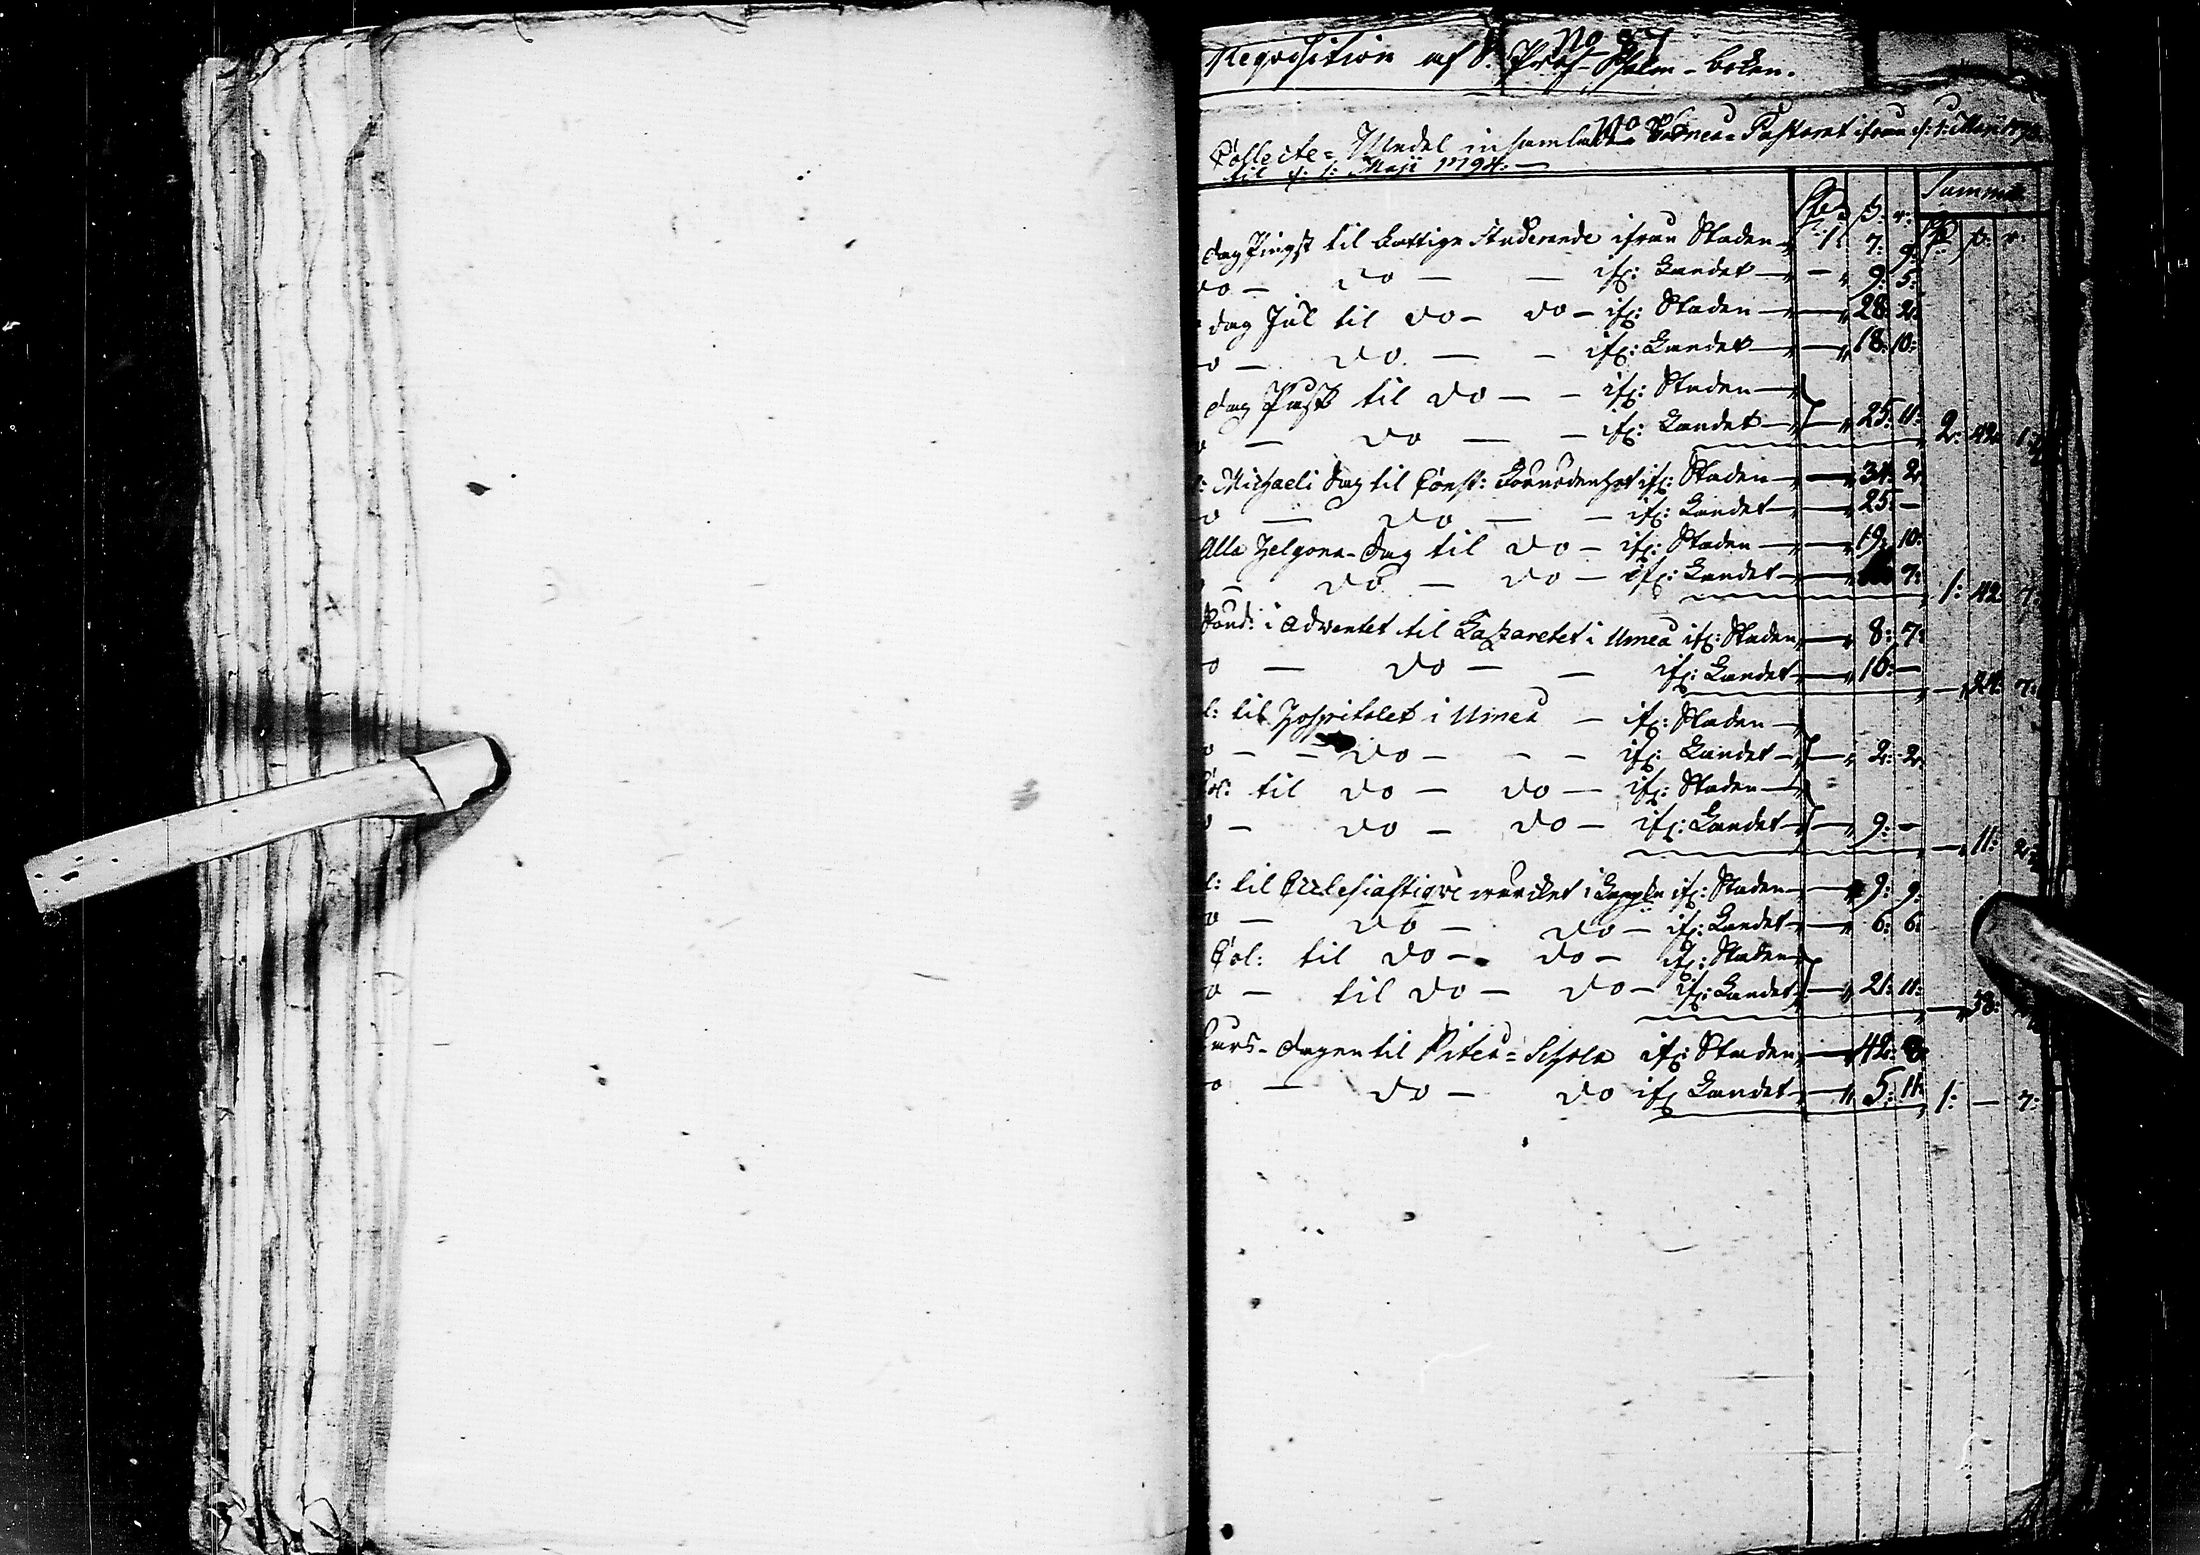 No 87
Reqvisition af S. Prof-Psalm-boken.
Collecte-Medel insamlade Torneå-Pastorat ifrån d: 1: Maji
til d: 1: Maji 1794:—
Rd s: r: Summa
Rd s: r:
dag Pingst til Fattige Studerande ifrån Staden 1: 7: 9:
do — do — — ifr: Landet — 9: 5:
dag Jul til do — do — ifr: Staden — 28: 2:
o — do — — ifr: Landet — 18: 10:
dag Påsk til do — — ifr: Staden
o — do — — ifr: Landet — 25: 11: 2: 42: 1:
: Michaeli Dag til Const: ifr: Staden — 34: 2:
o — do — — ifr: Landet — 25: —
Alla Helgona-Dag til do — ifr: Staden — 19: 10:
— do — do — ifr: Landet — 7: 1: 42: 7:
Sönd: i Adventet til Lazaretet i Umeå ifr: Staden — 8: 7:
o — do — — ifr: Landet — 16: — — 24: 7:
l: til Hospitalet i Umeå — ifr: Staden
o — — do — — — ifr: Landet — 2: 2:
Col: til do — do — ifr: Staden
o — do — do — ifr: Landet — 9: — — 11: 2:
l: til Ecclesiastiqve wercket i Lappm ifr: Staden — 9: 9:
o — do — do — ifr: Landet — 6: 6:
Col: til do — do — ifr: Staden
o — til do — do — ifr: Landet — 21: 11: — 38:
Dagen til Piteå-Schola ifr: Staden — 42: 8:
o — do — do ifr Landet — 5: 11: 1: — 7: